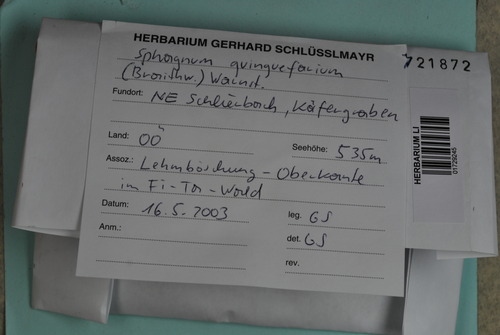 HERBARIUM GERHARD SCHLÜSSLMAYR
Sphagnum quinquefarium
(Braithw.) Warnst.
Fundort: NE Schlierbach, Käfergraben
Land: OÖ Seehöhe: 535m
Assoz.: Lehmböschung - Oberkante
im Fi-Ta-Wald
Datum: 16.5.2003 leg. GS
Anm.: det. GS
rev.
721872
HERBARIUM LI
01729245